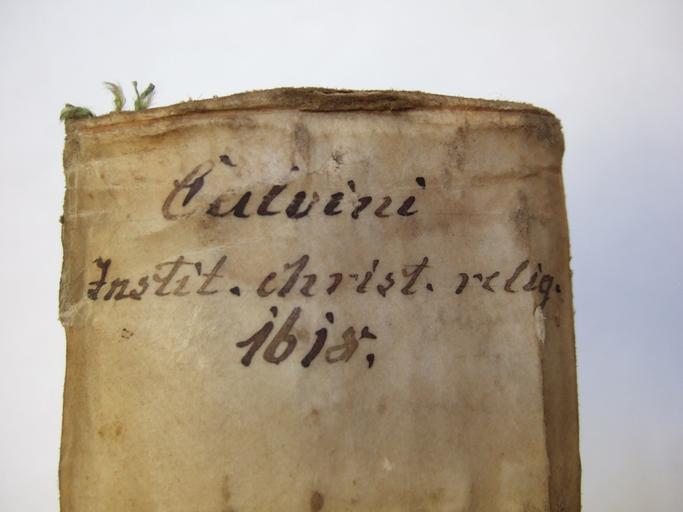 Calvini
Instit. christ. relig.
1618.